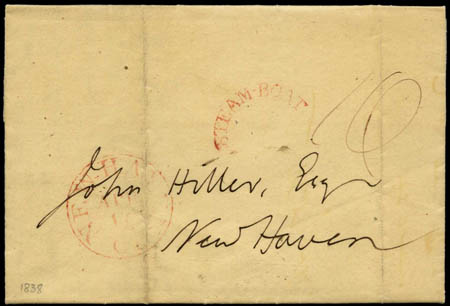 STEAM-BOAT
10
John Hiller, Esqr
New Haven
1838